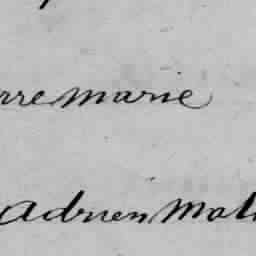 rre marie
adrien Mat